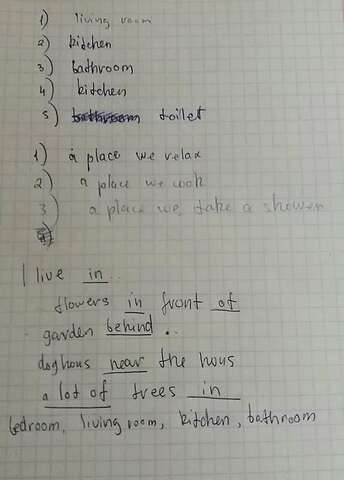 1) living room
2) kitchen
3) bathroom
4) kitchen
5) bathroom toilet
1) a place we relax
2) a place we cook
3) a place we take a shower
I live in..
flowers in front of
garden behind..
doghous near the hous
a lot of trees in
bedroom, living room, kitchen, bathroom